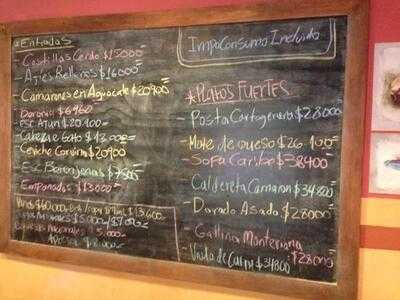 *Entradas
- Costillas Cerdo $15000=
- Ajies Rellenos $16000=
- Camarones en Aguacate $20900=
$6960
$20.100=
$13.000=
- Ceviche Corvina $20900
- Esc Berenjenas $7500=
- Empanadas $13000=
$60.000
$13.600=
$5.000
$5.000
ImpoConsumo Incluido
*PLATOS FUERTES
- Posta Cartagenera $28000=
- Mote de queso $26.100=
- Sopa Caribe $38400
- Caldereta Camaron $34800=
- Dorado Asado $28000=
- Gallina Monteriana $28000=
- $34800